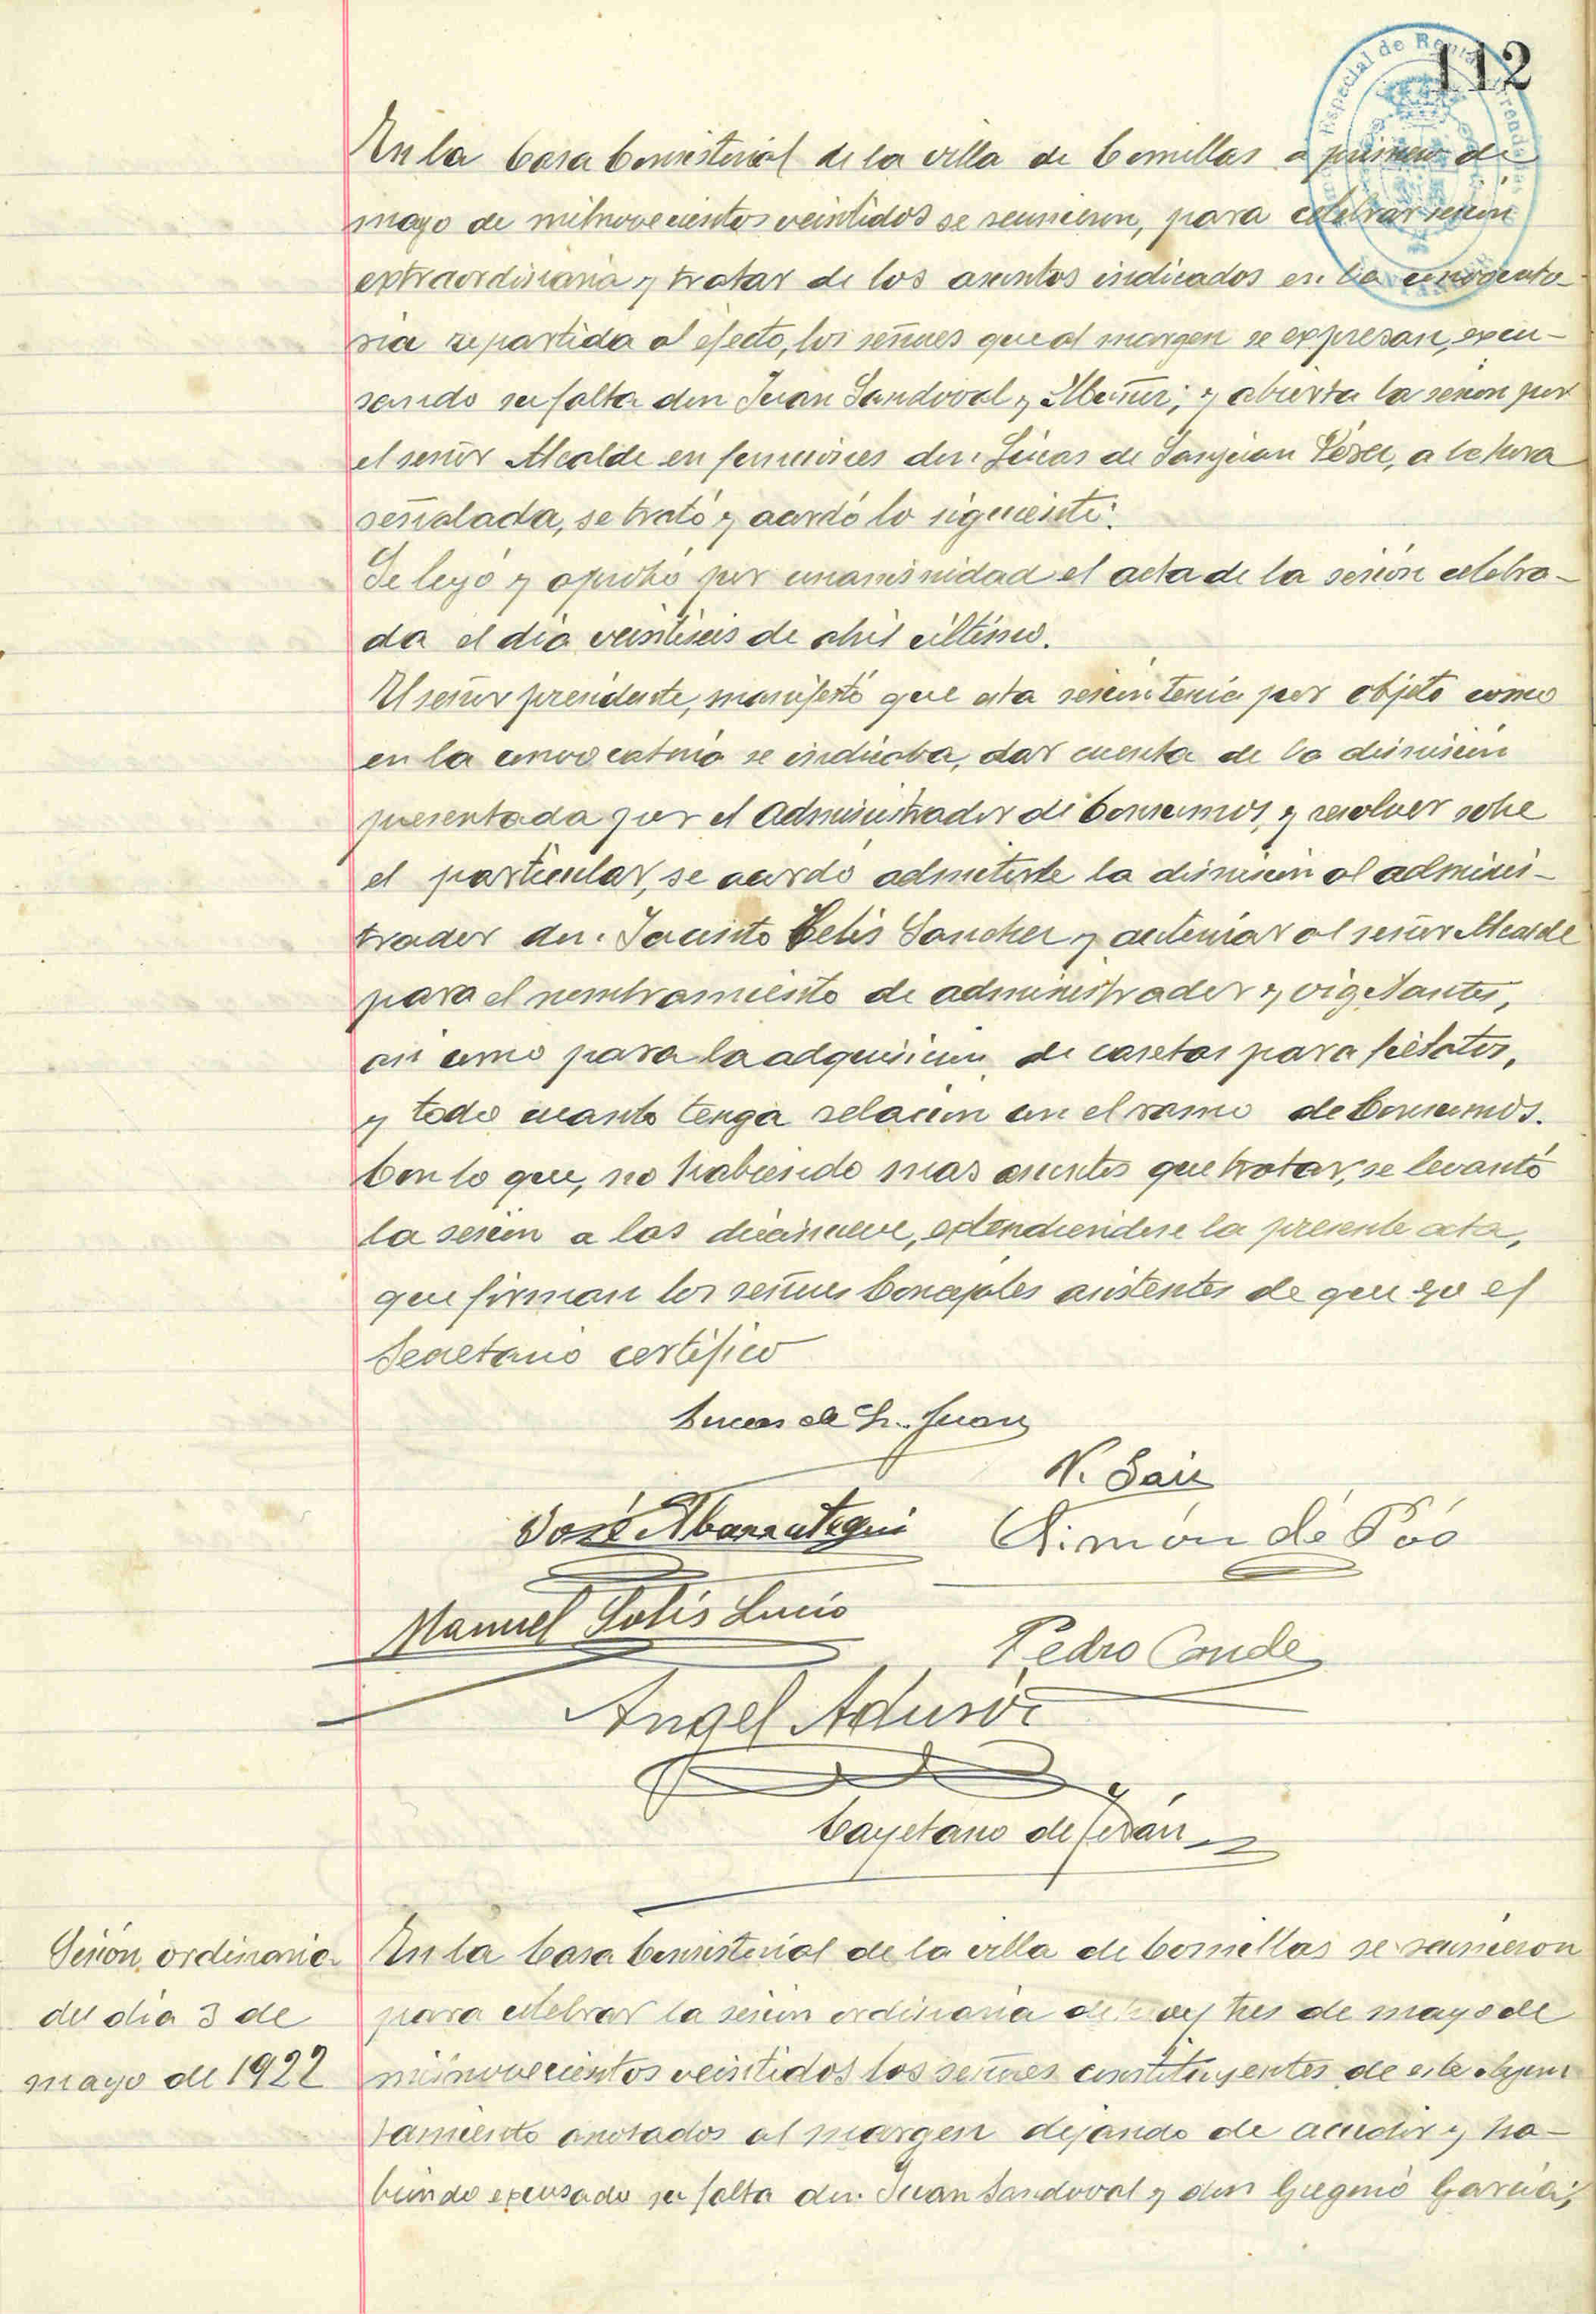 112
En la Casa Consistorial de la villa de Comillas a primero de
mayo de mil novecientos veintidos se reunieron, para celebrar sesión
extraordinaria y tratar de los asuntos indicados en la convocato-
ria repartida al efecto, los señores que al margen se expresan, excu-
sando su falta don Juan Sandoval y ; y abierta la sesión por
el señor Alcalde en funciones don Lucas de Sanjuan Pérez, a la hora
señalada, se trató y acordó lo siguiente:
Se leyó y aprobó por unanimidad el acta de la sesión celebra-
da el día veintiseis de abril último.
El señor presidente, manifestó que esta sesión tenía por objeto como
en la convocatoria se indicaba, dar cuenta de la dimisión
presentada por el Administrador de Consumos, y resolver sobre
el particular, se acordó admitirle la dimisión al adminis-
trador don Jacinto Celis Sanchez y autorizar al señor Alcalde
para el nombramiento de administrador y vigilantes,
asi como para la adquisición de casetas para fielatos,
y todo cuanto tenga relación con el ramo de Consumos.
Con lo que, no habiendo mas asuntos que tratar, se levantó
la sesión a las diecinueve, extendiendose la presente acta,
que firman los señores Concejales asistentes de que yo el
Secretario certifico
Lucas de S. Juan
N. Saiz
José Abarrategui Simón de Póo
Manuel Solís Lucio
Pedro Conde
Angel
Cayetano de Terán
Sesión ordinaria
del día 3 de
mayo de 1922
En la Casa Consistorial de la villa de Comillas se reunieron
para celebrar la sesión ordinaria de hoy tres de mayo de
mil novecientos veintidos los señores constituyentes de este Ayun
tamiento anotados al margen dejando de acudir y ha-
biendo excusado su falta don Juan Sandoval y don Gregorio García;